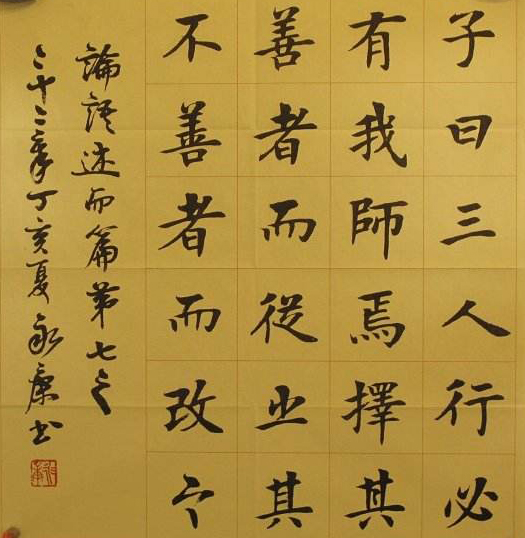 子曰三人行必
有我師焉擇其
善者而從之其
不善者而改之
論語述而篇第七之
二十二章丁亥夏永康书